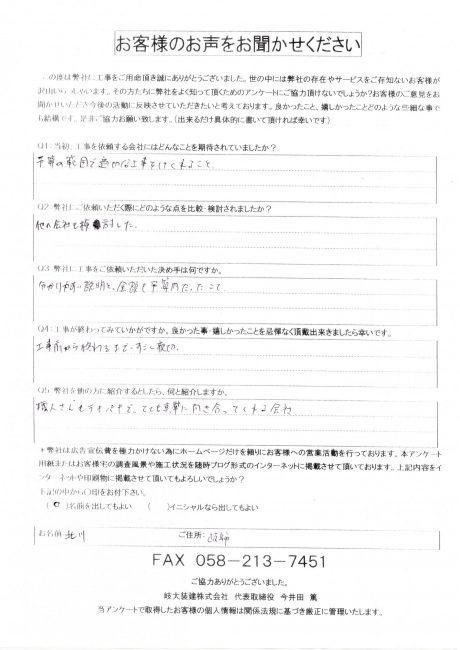 お客様のお声をお聞かせください
この度は弊社に工事をご用命頂き誠にありがとうございました。世の中には弊社の存在やサービスをご存知ないお客様が
沢山いらっしゃいます。その方たちに弊社をよく知って頂くためのアンケートにご協力頂けないでしょうか?お客様のご意見をお
聞かせいただき今後の活動に反映させていただきたいと考えております。良かったこと、嬉しかったことどのような些細な事で
も結構です。是非ご協力お願い致します。(出来るだけ具体的に書いて頂ければ幸いです)
Q1:当初、工事を依頼する会社にはどんなことを期待されていましたか?
予算の範囲で適切な工事をしてくれること。
Q2:弊社にご依頼いただく際にどのような点を比較・検討されましたか?
他の会社も検討した。
Q3:弊社に工事をご依頼いただいた決め手は何ですか。
分かりやすい説明と、金額も予算内だったこと。
Q4:工事が終わってみていかがですか。良かった事・嬉しかったことを忌憚なく頂戴出来きましたら幸いです。
工事前から終わるまで、すごく親切。
Q5:弊社を他の方に紹介するとしたら、何と紹介しますか。
職人さんもていねいで、とても真摯に向き合ってくれる会社
*弊社は広告宣伝費を極力かけない為にホームページだけを頼りにお客様への営業活動を行っております。本アンケート
用紙またはお客様宅の調査風景や施工状況を随時ブログ形式のインターネットに掲載させて頂いております。上記内容をイ
ンターネットや印刷物に掲載させて頂いてもよろしいでしょうか?
下記の中から○印をお付下さい。
(○)名前を出してもよい (　)イニシャルなら出してもよい
お名前 北川 ご住所: 岐阜市
FAX 058-213-7451
ご協力ありがとうございました。
岐太装建株式会社 代表取締役 今井田 篤
当アンケートで取得したお客様の個人情報は関係法規に基づき厳正に管理いたします。